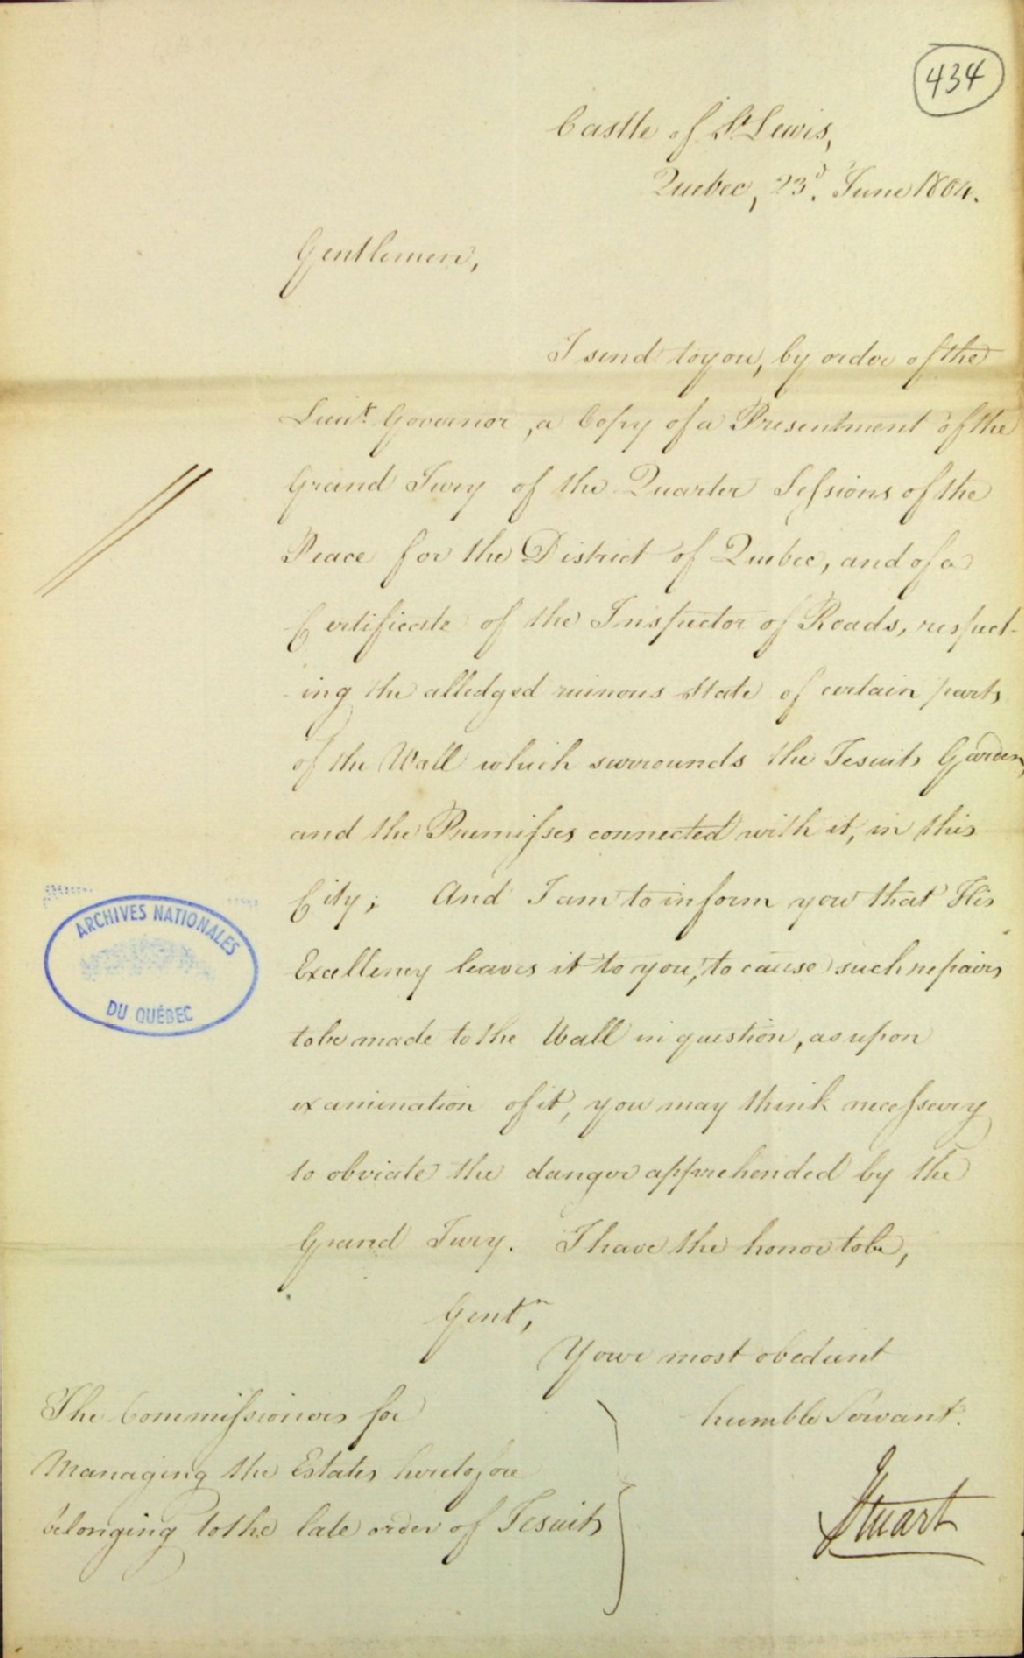 434
Castle of St Lewis,
Quebec, 23d. June 1804.
Gentlemen,
I send to you, by order of the
Lieut. Governor, a Copy of a Presentment of the
Grand Jury of the Quarter Sessions of the
Peace for the District of Quebec, and of a
Certificate of the Inspector of Roads, respect-
ing the alledged ruinous state of certain parts
of the Wall which surrounds the Jesuits Garden,
and the Premisses connected with it, in this
City; And I am to inform you that His
Excellency leaves it to you, to cause such repairs
to be made to the Wall in question, as upon
examination of it, you may think necessary
to obviate the danger apprehended by the
Grand Jury. I have the honor to be,
Gentn,
Your most obedient
humble Servant.
The Commissioners for
Managing the Estates heretofore
belonging to the late order of Jesuits
Stuart
ARCHIVES NATIONALES
DU QUÉBEC